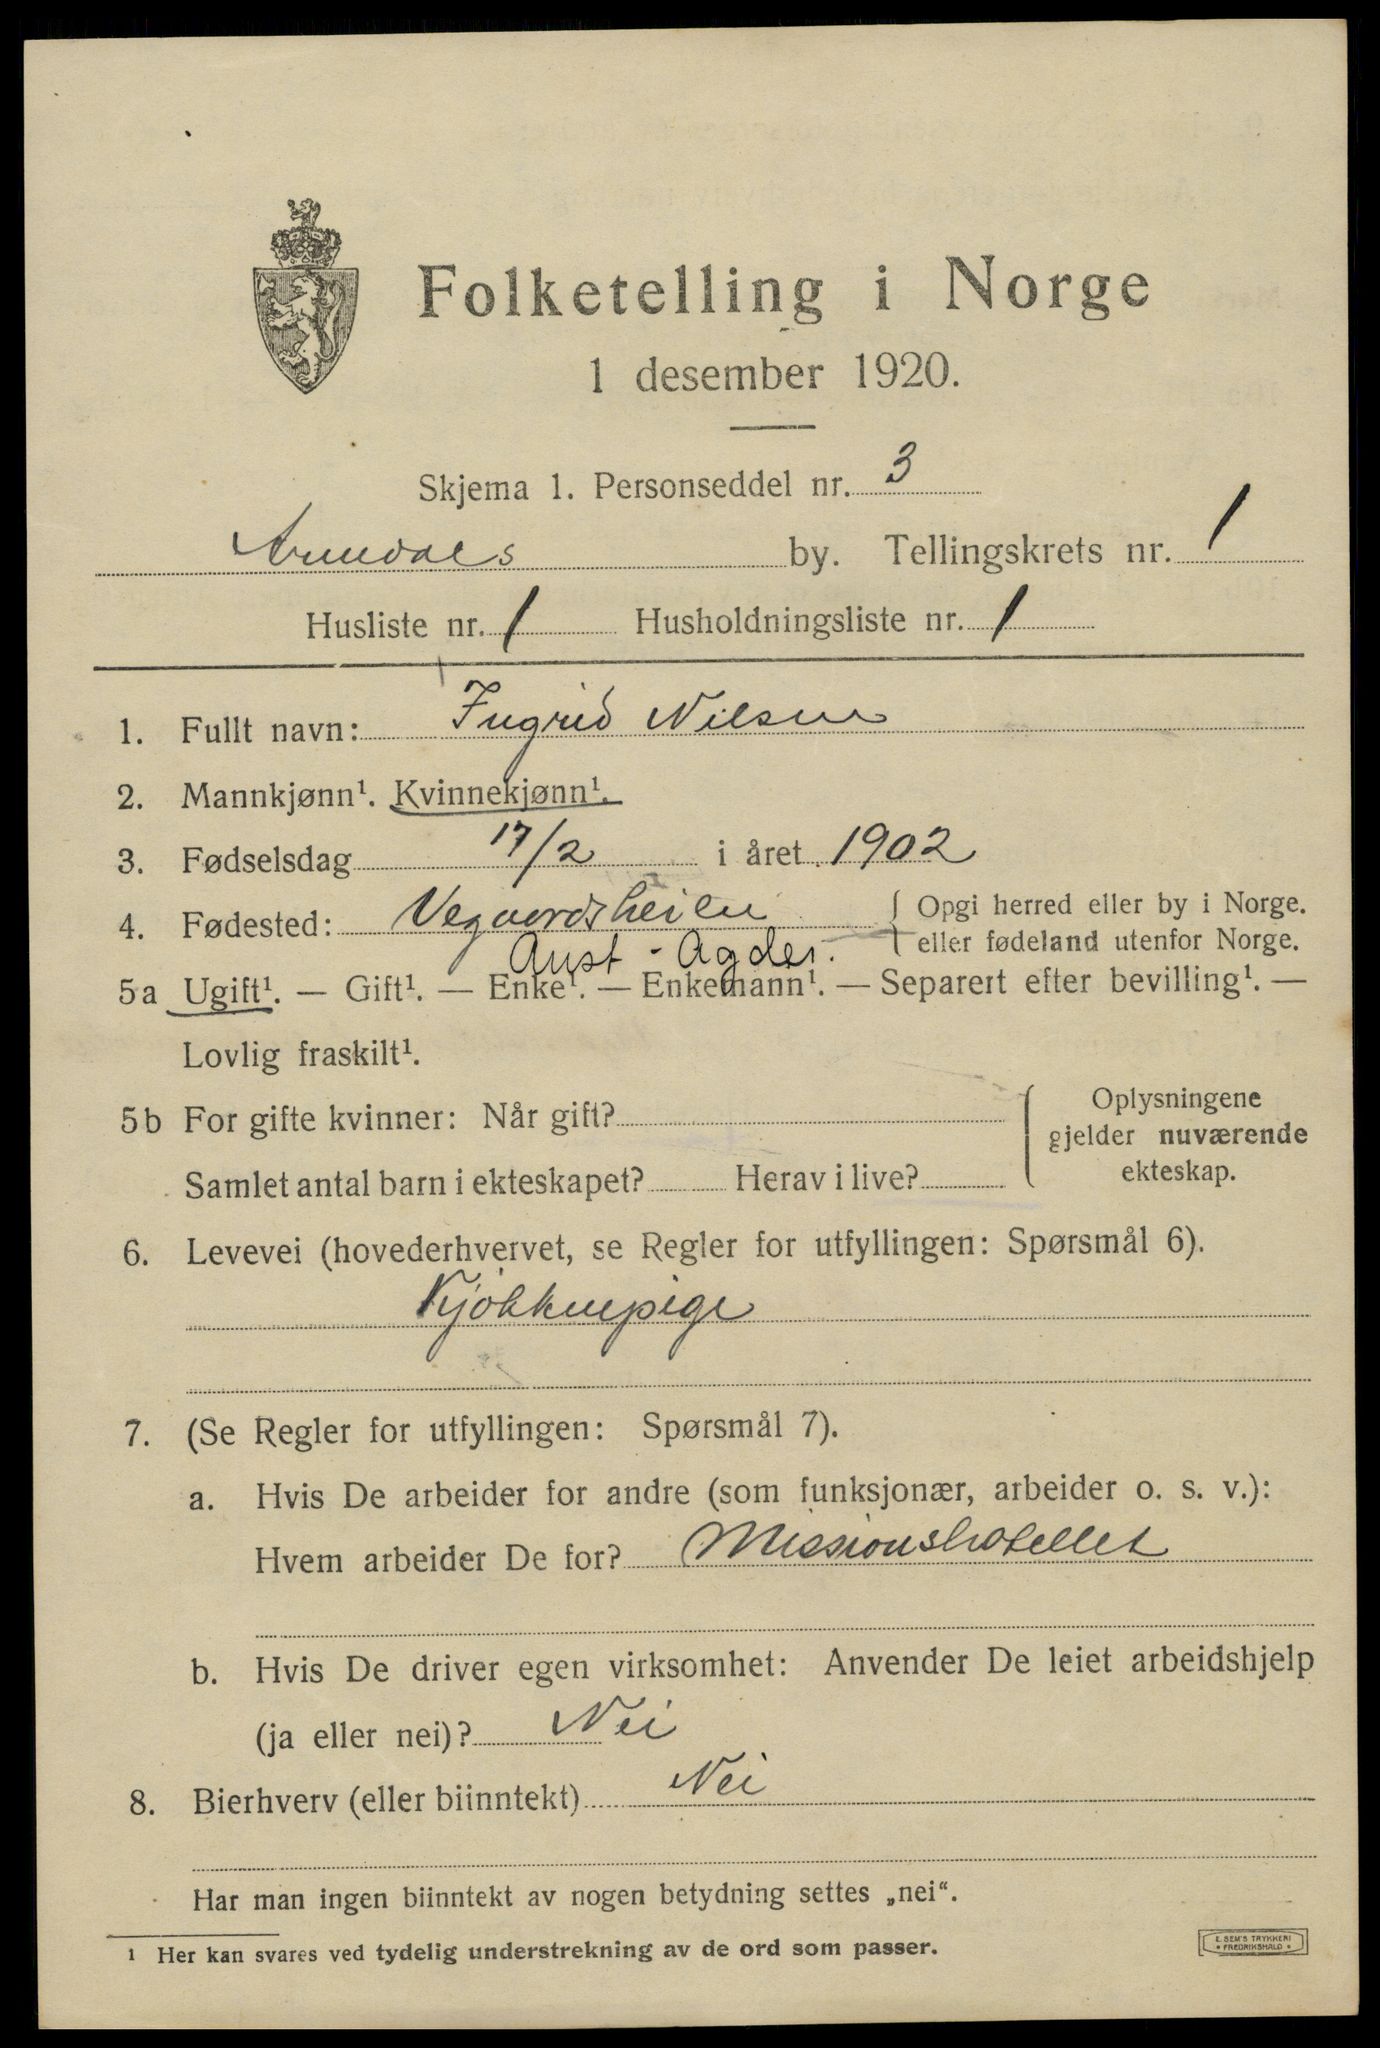 Folketelling i Norge
1 desember 1920.
Skjema 1. Personseddel nr. 3
Arendals by. Tellingskrets nr. 1
Husliste nr. 1 Husholdningsliste nr. 1
1. Fullt navn: Ingrid Nilsen
2. Mannkjønn¹. Kvinnekjønn¹.
3. Fødselsdag 17/2 i året 1902
4. Fødested: Vegaardsheien { Opgi herred eller by i Norge.
Aust-Agder. eller fødeland utenfor Norge.
5a Ugift¹. — Gift¹. — Enke¹. — Enkemann¹. — Separert efter bevilling¹. —
Lovlig fraskilt¹.
5b For gifte kvinner: Når gift? { Oplysningene
gjelder nuværende
Samlet antal barn i ekteskapet? Herav i live? ekteskap.
6. Levevei (hovederhvervet, se Regler for utfyllingen: Spørsmål 6).
Kjøkkenpige
7. (Se Regler for utfyllingen: Spørsmål 7).
a. Hvis De arbeider for andre (som funksjonær, arbeider o. s. v.):
Hvem arbeider De for? Missionshotellet
b. Hvis De driver egen virksomhet: Anvender De leiet arbeidshjelp
(ja eller nei)? Nei
8. Bierhverv (eller biinntekt) Nei
Har man ingen biinntekt av nogen betydning settes „nei“.
¹ Her kan svares ved tydelig understrekning av de ord som passer.
E. SEM'S TRYKKERI
• FREDRIKSHALD •